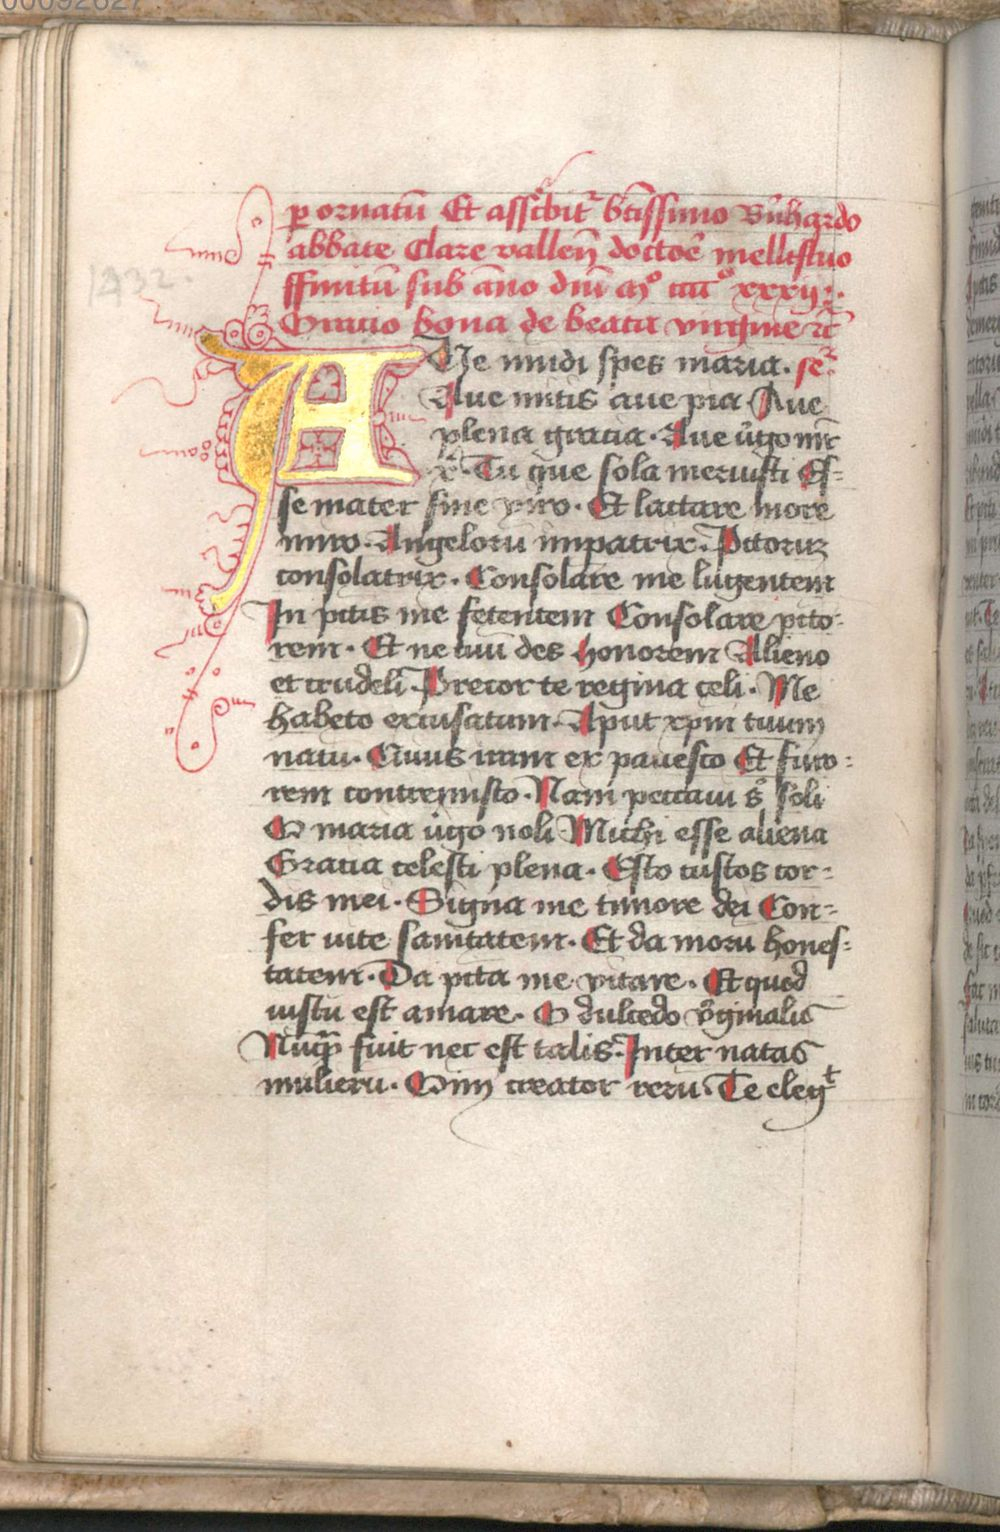 00092627
ꝑ ornatū Et assc̓bit᷑ btīssimo Bn̄hardo
abbate Clare vallen̄ doctoē mellifluo
ffinitū sub an̄o dnī mº ccccº xxxijº.
1432.
Oracio bona de beata virgine ꝛc̄
AUe mūdi spes maria. seꝛ̄
Aue mitis aue pia Aue
plena gracia. Aue v̓go mr̄
xp̄i. Tu que sola meruisti Es-
se mater sine viro. Et lactare more
miro. Angeloꝝ īmpatrix. Pctoruꝫ
consolatrix. Consolare me lugentem
In pctīs me fetentem Consolare pcto-
rem. Et ne tuū des honorem Alieno
et crudeli. Precor te regina celi. Me
habeto excusatum. Aput xpm tuum
natū. Cuius iram ex pauesco Et furo-
rem contremisco. Nam peccaui s̓ soli
O maria v̓go noli Michi esse aliena
Gracia celesti plena. Esto custos cor-
dis mei. Signa me timore dei Con-
fer vite sanitatem. Et da morū hones-
tatem. Da pctā me vitare. Et quod
iustū est amare. O dulcedo v̓ginalis
Nūqꝫ fuit nec est talis. Inter natas
mulierū. Om̄ creator rerū. Te elegᵗ